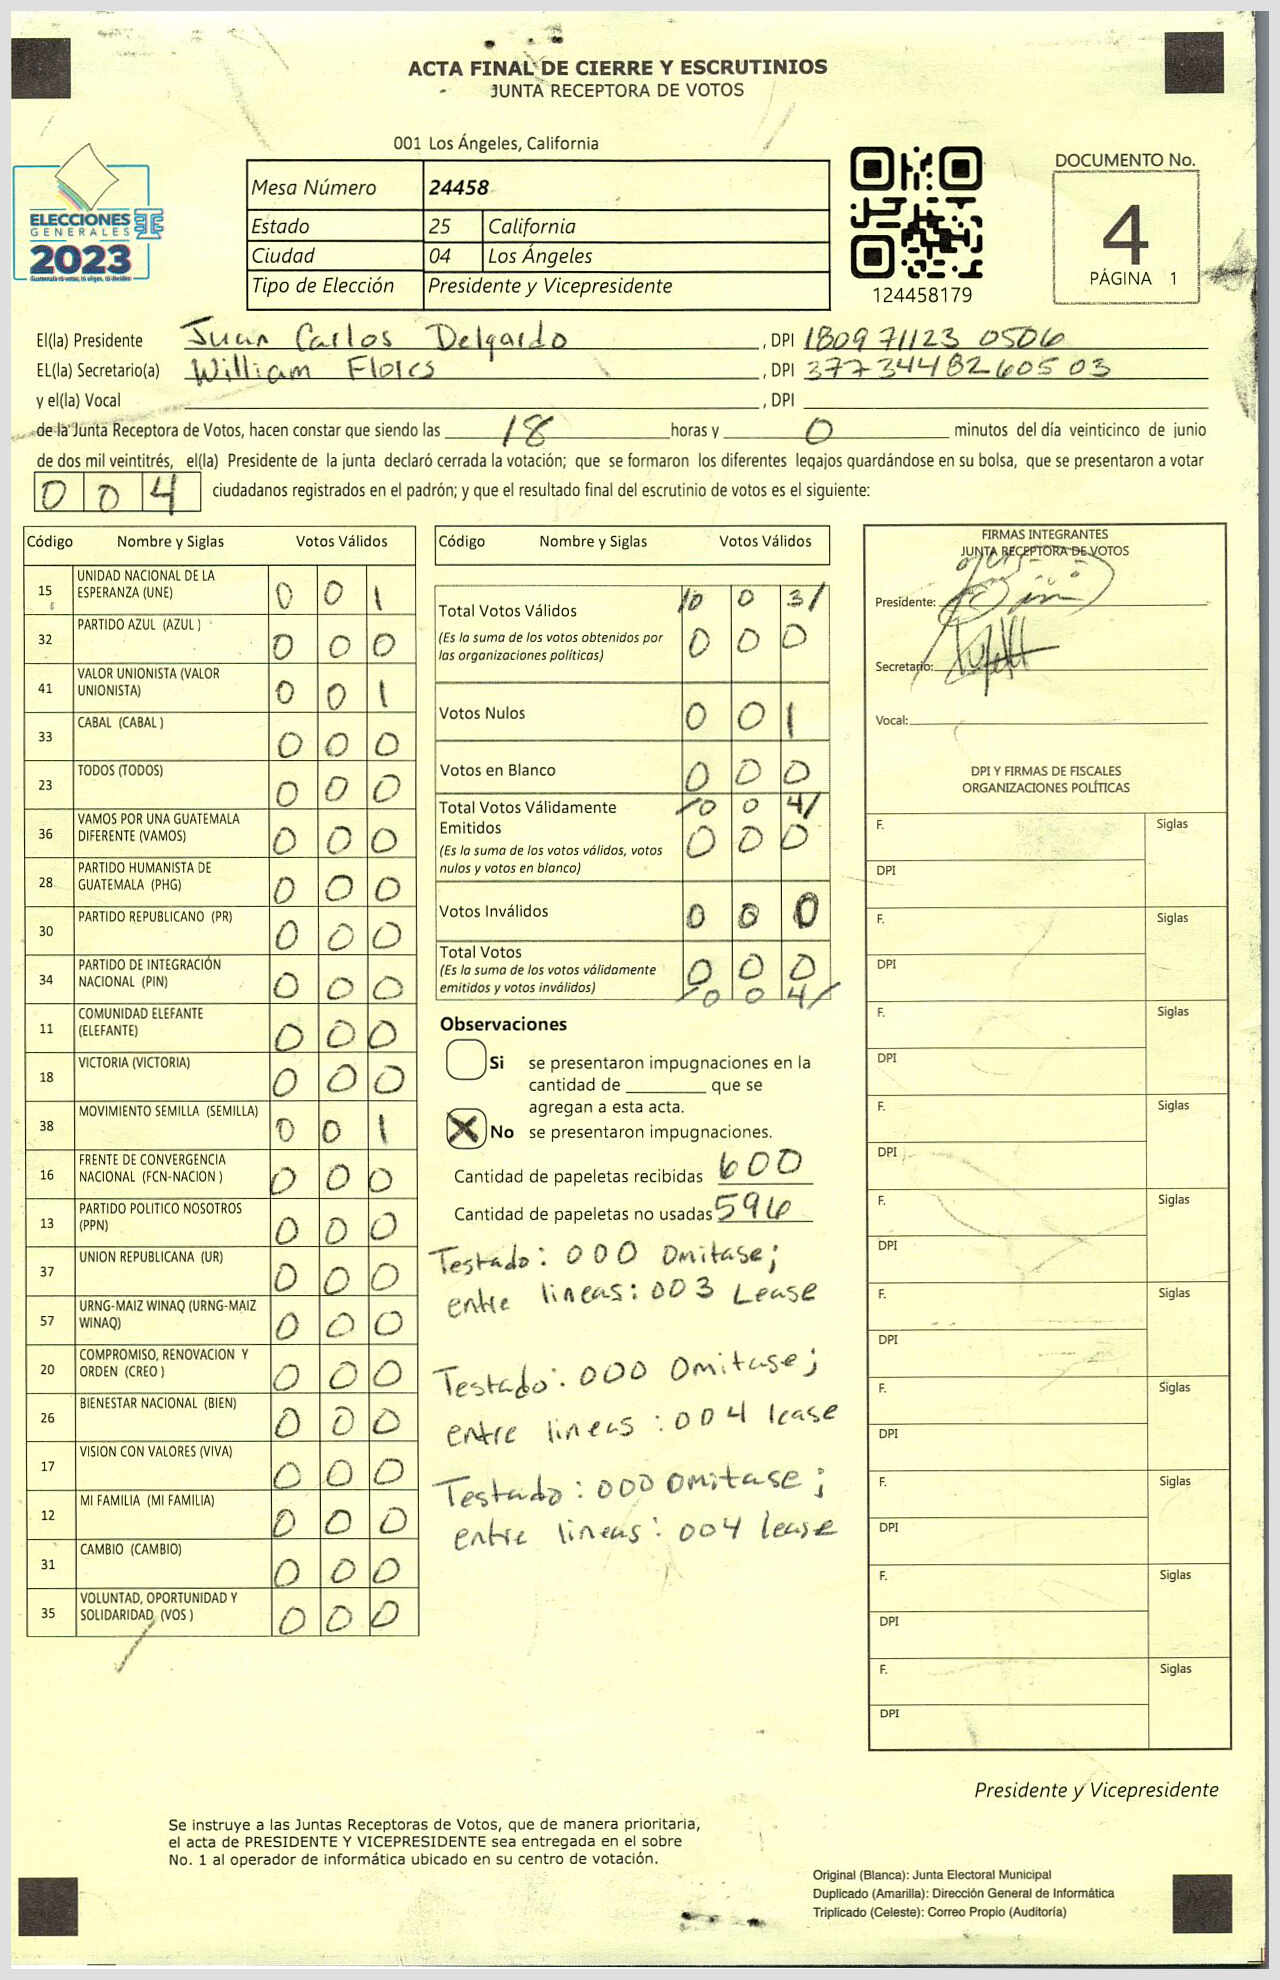 ACTA FINAL DE CIERRE Y ESCRUTINIOS
JUNTA RECEPTORA DE VOTOS
001 Los Ángeles, California
Mesa Número 24458
Estado 25 California
Ciudad 04 Los Ángeles
Tipo de Elección Presidente y Vicepresidente
ELECCIONES
GENERALES
2023
124458179
DOCUMENTO No.
4
PÁGINA 1
El(la) Presidente Juan Carlos Delgardo, DPI 1809 71123 0506
EL(la) Secretario(a) William Flores, DPI 3773448260503
y el(la) Vocal , DPI
de la Junta Receptora de Votos, hacen constar que siendo las 18 horas y 0 minutos del día veinticinco de junio
de dos mil veintitrés, el(la) Presidente de la junta declaró cerrada la votación; que se formaron los diferentes legajos guardándose en su bolsa, que se presentaron a votar
0 0 4 ciudadanos registrados en el padrón; y que el resultado final del escrutinio de votos es el siguiente:
Código Nombre y Siglas Votos Válidos
15 UNIDAD NACIONAL DE LA
ESPERANZA (UNE) 0 0 1
32 PARTIDO AZUL (AZUL ) 0 0 0
41 VALOR UNIONISTA (VALOR
UNIONISTA) 0 0 1
33 CABAL (CABAL ) 0 0 0
23 TODOS (TODOS) 0 0 0
36 VAMOS POR UNA GUATEMALA
DIFERENTE (VAMOS) 0 0 0
28 PARTIDO HUMANISTA DE
GUATEMALA (PHG) 0 0 0
30 PARTIDO REPUBLICANO (PR) 0 0 0
34 PARTIDO DE INTEGRACIÓN
NACIONAL (PIN) 0 0 0
11 COMUNIDAD ELEFANTE
(ELEFANTE) 0 0 0
18 VICTORIA (VICTORIA) 0 0 0
38 MOVIMIENTO SEMILLA (SEMILLA) 0 0 1
16 FRENTE DE CONVERGENCIA
NACIONAL (FCN-NACION ) 0 0 0
13 PARTIDO POLITICO NOSOTROS
(PPN) 0 0 0
37 UNION REPUBLICANA (UR) 0 0 0
57 URNG-MAIZ WINAQ (URNG-MAIZ
WINAQ) 0 0 0
20 COMPROMISO, RENOVACION Y
ORDEN (CREO ) 0 0 0
26 BIENESTAR NACIONAL (BIEN) 0 0 0
17 VISION CON VALORES (VIVA) 0 0 0
12 MI FAMILIA (MI FAMILIA) 0 0 0
31 CAMBIO (CAMBIO) 0 0 0
35 VOLUNTAD, OPORTUNIDAD Y
SOLIDARIDAD (VOS ) 0 0 0
Código Nombre y Siglas Votos Válidos
Total Votos Válidos /0 0 3/
(Es la suma de los votos obtenidos por
las organizaciones políticas) 0 0 0
Votos Nulos 0 0 1
Votos en Blanco 0 0 0
Total Votos Válidamente /0 0 4/
Emitidos 0 0 0
(Es la suma de los votos válidos, votos
nulos y votos en blanco)
Votos Inválidos 0 0 0
Total Votos
(Es la suma de los votos válidamente 0 0 0
emitidos y votos inválidos) /0 0 4/
Observaciones
Si se presentaron impugnaciones en la
cantidad de ________ que se
agregan a esta acta.
X No se presentaron impugnaciones.
Cantidad de papeletas recibidas 600
Cantidad de papeletas no usadas 596
Testado: 000 Omitase;
entre lineas: 003 Lease
Testado: 000 Omitase;
entre lineas : 004 lease
Testado : 000 Omitase ;
entre lineas: 004 lease
FIRMAS INTEGRANTES
JUNTA RECEPTORA DE VOTOS
Presidente:
Secretario:
Vocal:
DPI Y FIRMAS DE FISCALES
ORGANIZACIONES POLÍTICAS
F. Siglas
DPI
F. Siglas
DPI
F. Siglas
DPI
F. Siglas
DPI
F. Siglas
DPI
F. Siglas
DPI
F. Siglas
DPI
F. Siglas
DPI
F. Siglas
DPI
F. Siglas
DPI
Presidente y Vicepresidente
Se instruye a las Juntas Receptoras de Votos, que de manera prioritaria,
el acta de PRESIDENTE Y VICEPRESIDENTE sea entregada en el sobre
No. 1 al operador de informática ubicado en su centro de votación.
Original (Blanca): Junta Electoral Municipal
Duplicado (Amarilla): Dirección General de Informática
Triplicado (Celeste): Correo Propio (Auditoría)